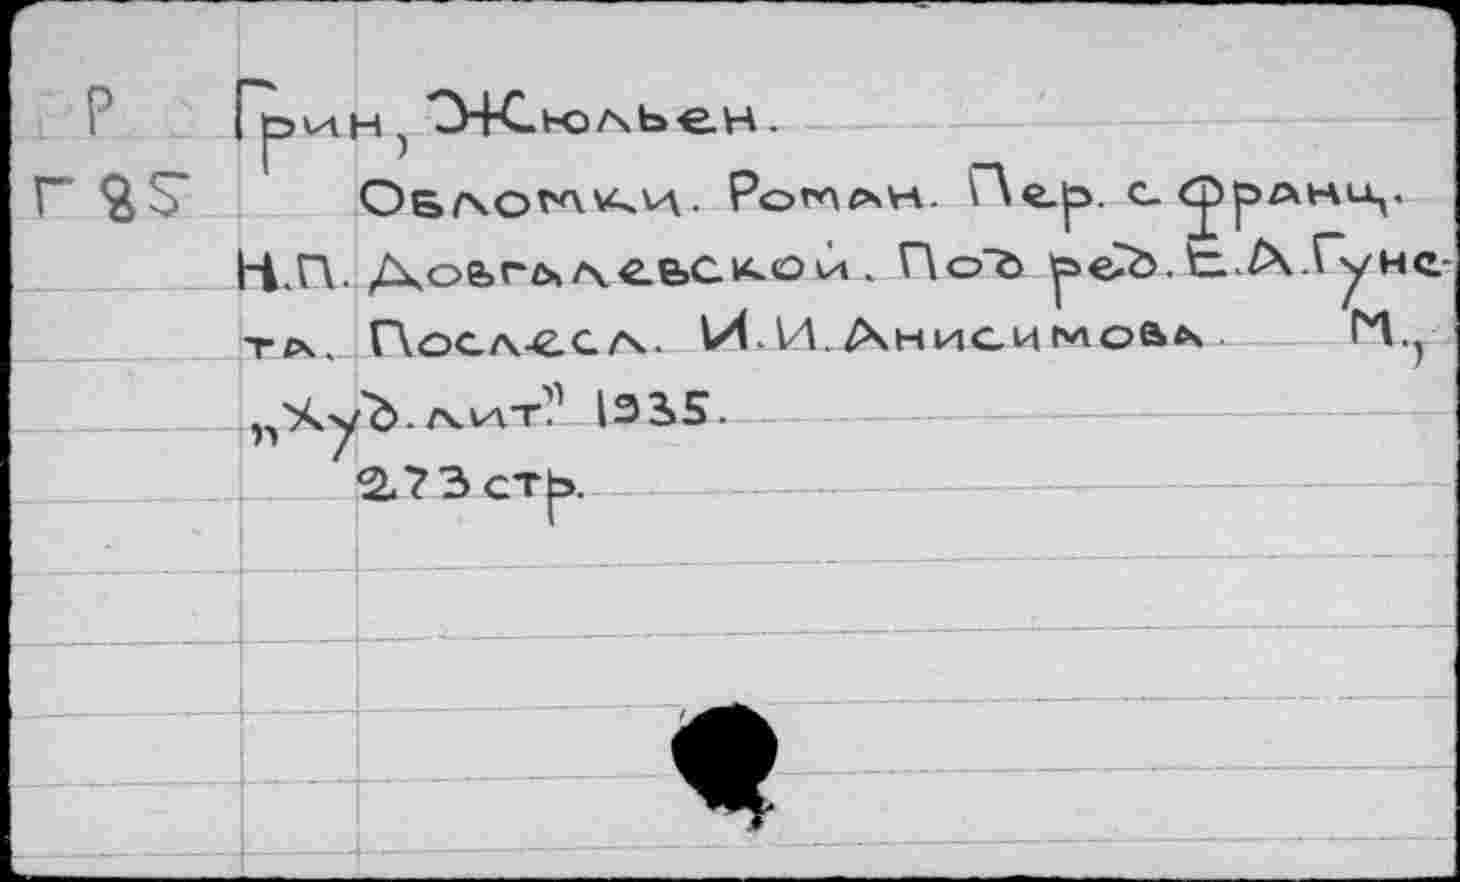 Р Грин, Жюльен.
Г 85 Обломки. Роман. Пер. с франц.
Н.П. Довгалевской. Под ред. Е.А.Гунс-
та. Послесл. И.И.Анисимова. М.,
„Худ. лит." 1935.
273 стр.